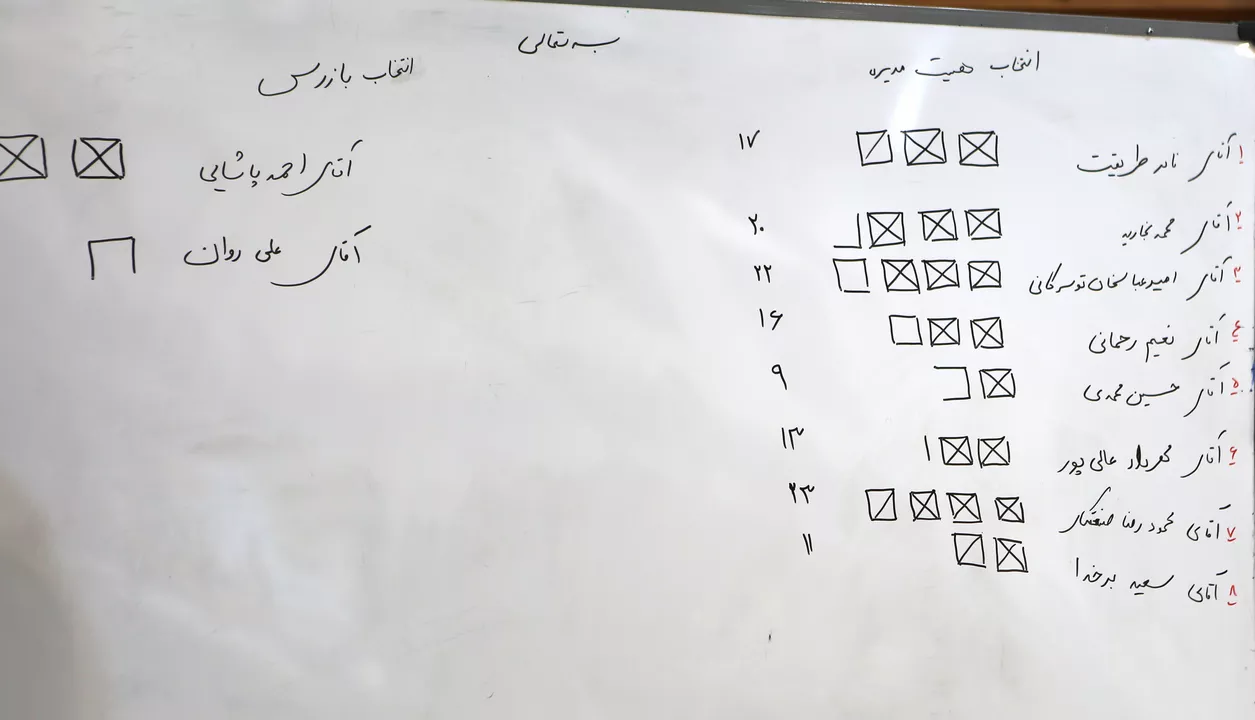 بسه تعالی
انتخاب هیئت مدیره
۱ آقای نادر طریقت ۱۷
۲ آقای محمد نجاریه ۲۰
۳ آقای امیرعباسخان تویسرکانی ۲۲
۴ آقای نعیم رحمانی ۱۶
۵ آقای حسین محمدی ۹
۶ آقای مهرداد عالی پور ۱۳
۷ آقای محمود رضا صنعتکار ۲۳
۸ آقای سعید برخدا ۱۱
انتخاب بازرس
آقای احمد پاشایی
آقای علی روان